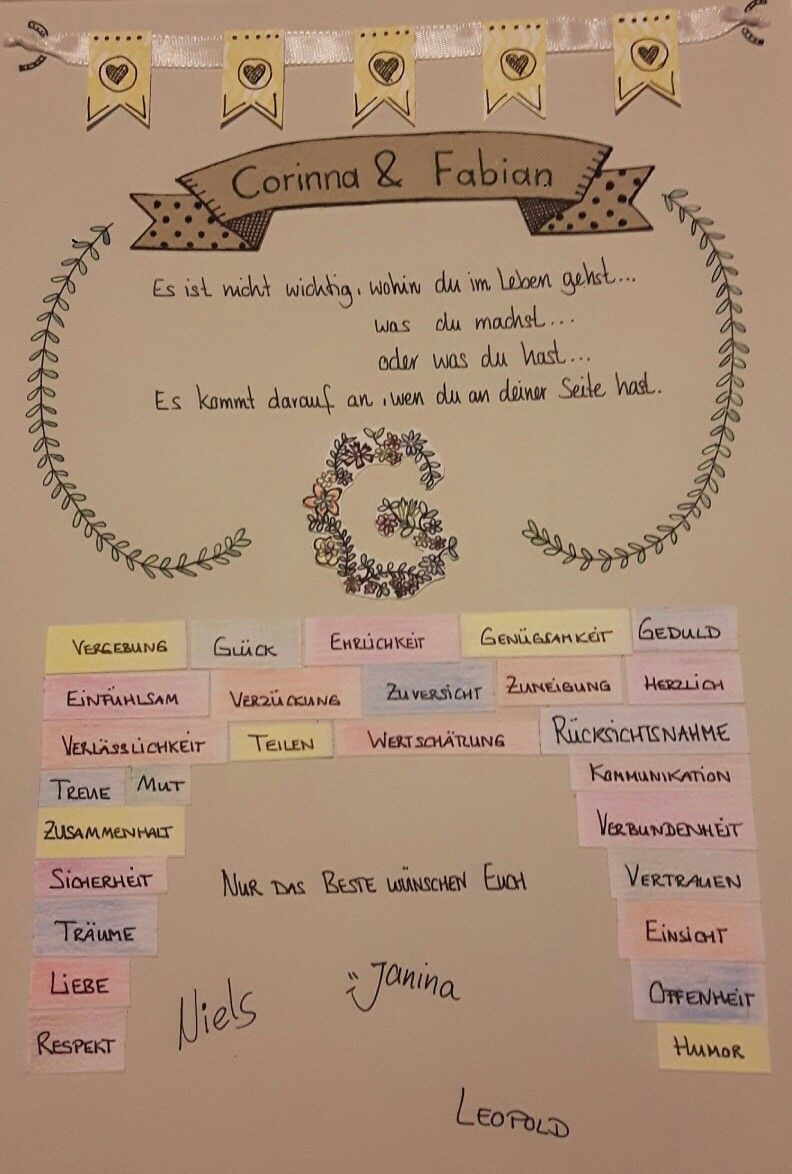 Corinna & Fabian
Es ist nicht wichtig, wohin du im Leben gehst...
was du machst...
oder was du hast...
Es kommt darauf an, wen du an deiner Seite hast.
VERGEBUNG GLÜCK EHRLICHKEIT GENÜGSAMKEIT GEDULD
EINFÜHLSAM VERZÜCKUNG ZUVERSICHT ZUNEIGUNG HERZLICH
VERLÄSSLICHKEIT TEILEN WERTSCHÄTZUNG RÜCKSICHTSNAHME
TREUE MUT KOMMUNIKATION
ZUSAMMENHALT VERBUNDENHEIT
SICHERHEIT NUR DAS BESTE WÜNSCHEN EUCH VERTRAUEN
TRÄUME EINSICHT
LIEBE Janina OFFENHEIT
RESPEKT Niels HUMOR
LEOPOLD